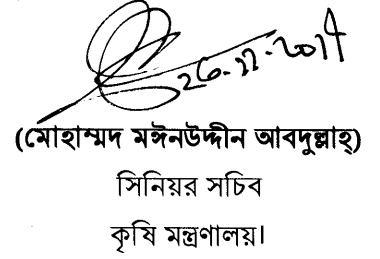 26.11.2017
(মোহাম্মদ মঈনউদ্দীন আবদুল্লাহ্)
সিনিয়র সচিব
কৃষি মন্ত্রণালয়।